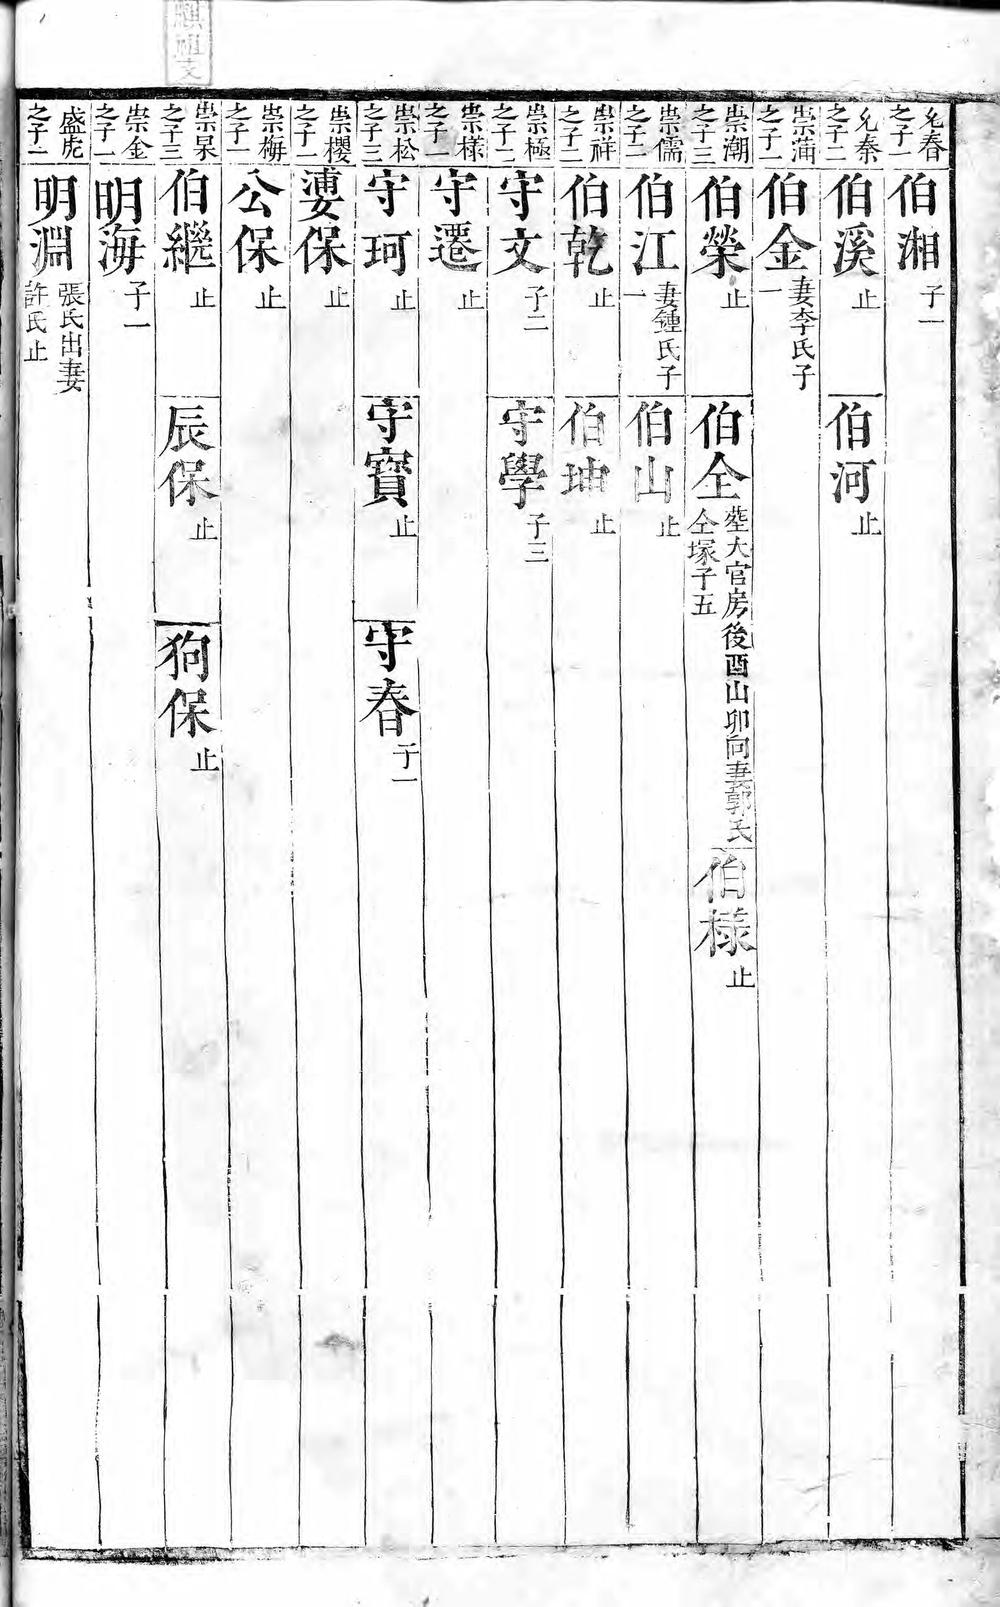 允春之子一 伯湘 子一
允秦之子二 伯溪 止 伯河 止
崇蒲之子一 伯金 妻李氏子一
崇潮之子三 伯榮 止 伯仝 塟大官房後酉山卯向妻郭氏仝塚子五 伯様 止
崇儒之子二 伯江 妻鍾氏子一 伯山 止
崇祥之子二 伯乾 止 伯坤 止
崇極之子二 守文 子二 守學 子三
崇様之子一 守遷 止
崇松之子三 守珂 止 守寶 止 守春 子一
崇櫻之子一 婁保 止
崇梅之子一 公保 止
崇杲之子三 伯繼 止 辰保 止 狗保 止
崇金之子一 明海 子一
盛虎之子二 明淵 張氏出妻許氏止